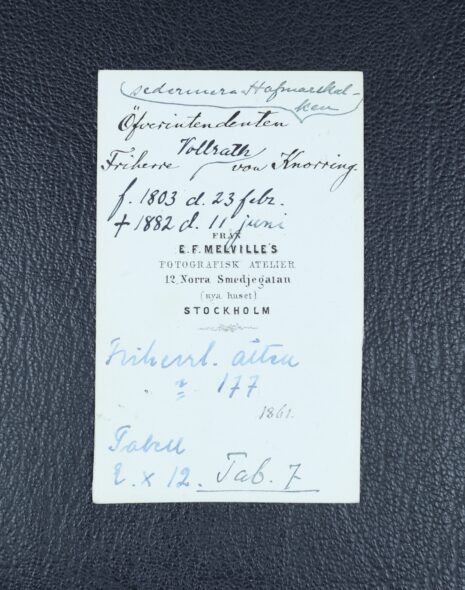 (sedermera Hofmarskal-
ken)
Öfverintendenten
Vollrath
Friherre von Knorring.
f. 1803 d. 23 febr.
† 1882 d. 11 juni
FRÅN
E. F. MELVILLE'S
FOTOGRAFISK ATELIER
12 Norra Smedjegatan
(nya huset)
STOCKHOLM
Friherrl. ätten
177
1861.
Tabell
12. Tab. 7